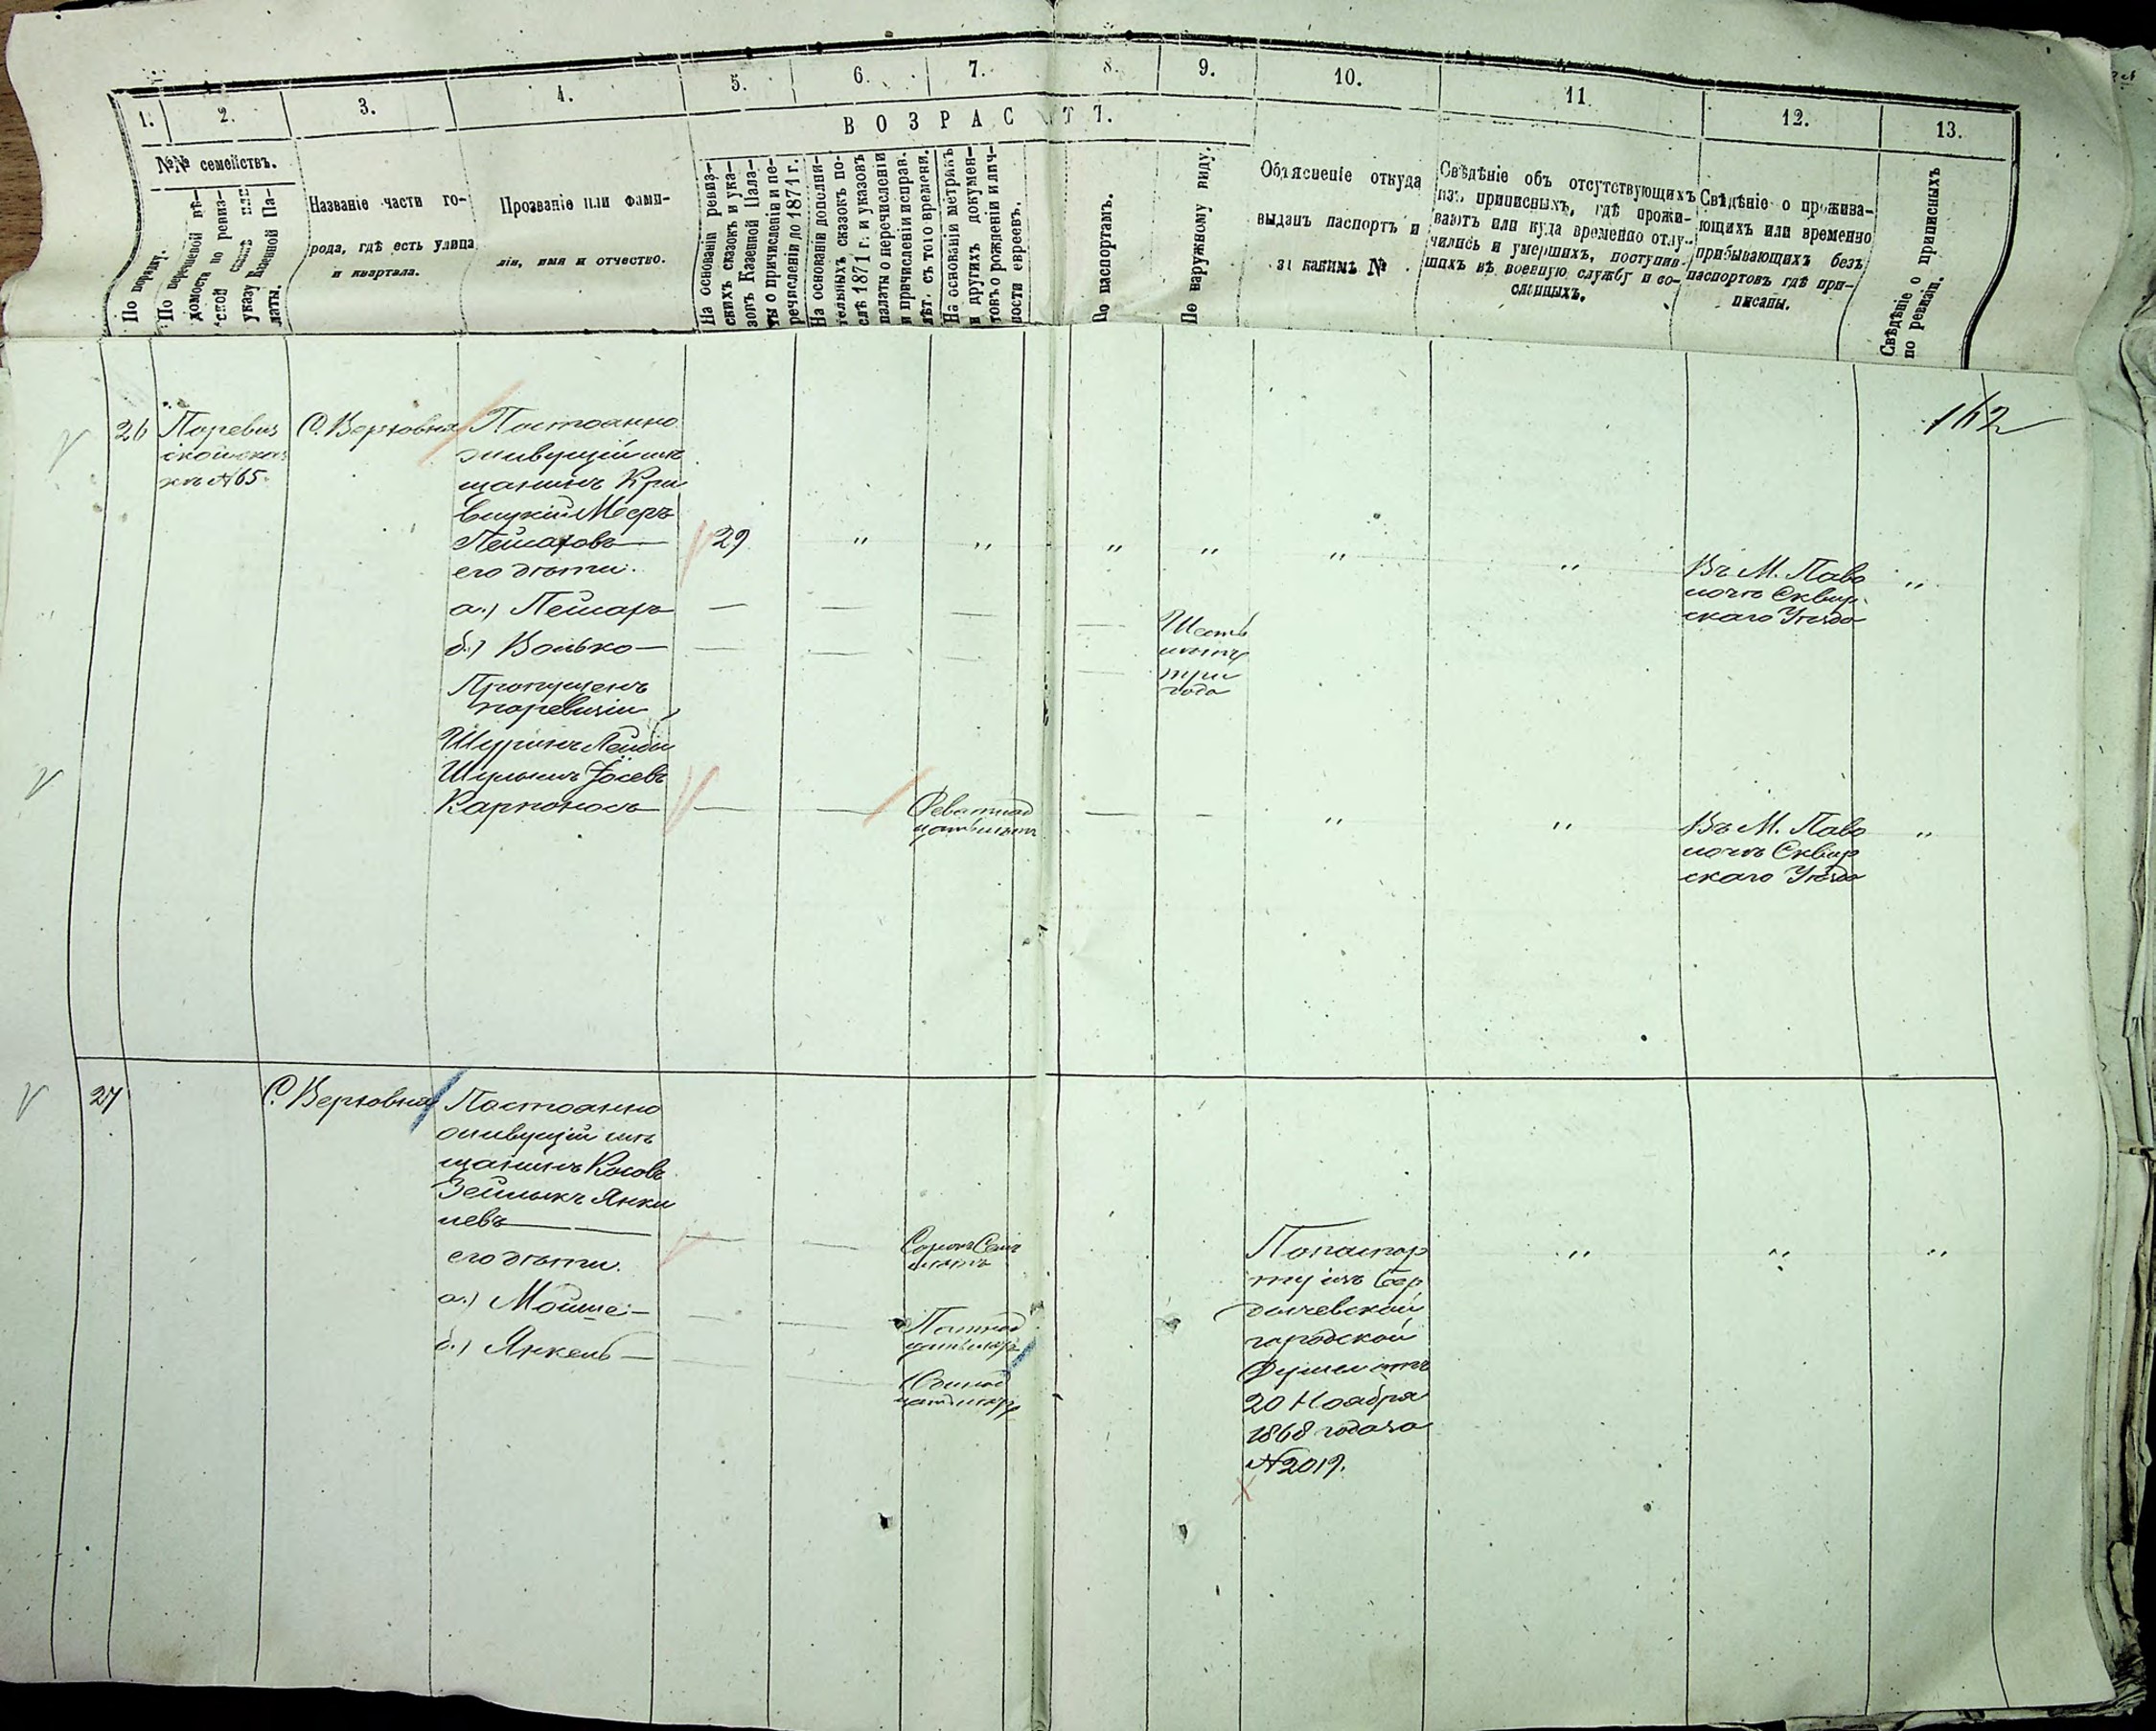 1.
2.
3.
4.
5.
6.
7.
8.
9.
10.
11.
12.
13.
ВОЗРАСТЪ.
№№ семействъ.
По порядку.
По перечневой вѣ-
домости по ревиз-
ской сказкѣ или
указу Казенной Па-
латы.
Названіе части го-
рода, гдѣ есть улица
и квартала.
Прозваніе или фами-
лія, имя и отчество.
На основаніи ревиз-
скихъ сказокъ и ука-
зовъ Казенной Пала-
ты о причисленіи и пе-
речисленіи до 1871 г.
На основаніи дополни-
тельныхъ сказокъ по-
слѣ 1871 г. и указовъ
палаты о перечисленіи
и причисленіи исправ.
лѣт. съ того времени.
На основаніи метрикъ
и другихъ докумен-
товъ о рожденіи и лич-
ности евреевъ.
По паспортамъ.
По наружному виду.
Объясненіе откуда
выданъ паспортъ и
за какимъ №
Свѣдѣніе объ отсутствующихъ
изъ приписныхъ, гдѣ прожи-
ваютъ или куда временно отлу-
чились и умершихъ, поступив-
шихъ въ военную службу и со-
сланныхъ.
Свѣдѣніе о прожива-
ющихъ или временно
прибывающихъ безъ
паспортовъ гдѣ при-
писаны.
Свѣдѣніе о приписныхъ
по ревизіи.
162
26
По ревиз
ской сказ
кѣ №65.
С. Верховня
Постоянно
живущій мѣ
щанинъ Кри
вицкій Мееръ
Лейзаровъ
29
его дѣти.
а.) Лейзаръ
б.) Волько
Шесть
лѣтъ
три
года
Въ М. Паво
лочѣ Сквир
скаго Уѣзда
Пропущенъ
по ревизіи
Шуринъ Лейбы
Шулимъ Іосевъ
Карпоносъ
Девятнад
цать лѣтъ
Въ М. Паво
лочѣ Сквир
скаго Уѣзда
27
С. Верховня
Постоянно
живущій мѣ
щанинъ Косовъ
Зейлыкъ Янки
левъ
Сорокъ Семь
лѣтъ
его дѣти.
а.) Мойше
Пятнад
цать лѣтъ
б.) Янкель
Одинад
цать лѣтъ
По паспор
ту изъ Бер
дичевской
городской
Думы отъ
20 Ноября
1868 года за
№2019.